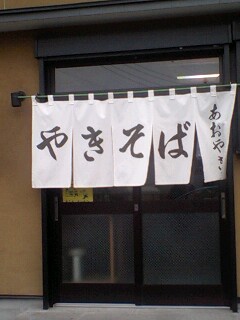 やきそば
あおやぎ